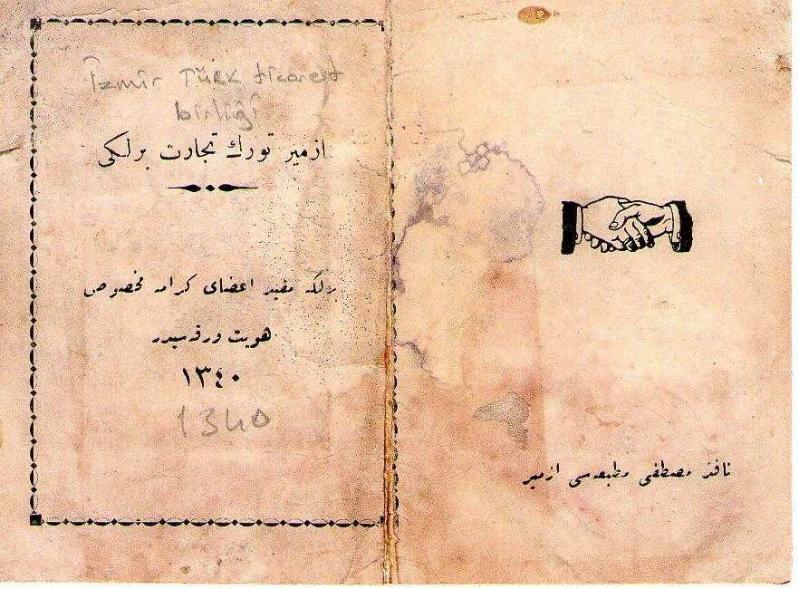 İzmir Türk ticaret
birliği
ازمير تورك تجارت برلكی
برلكه مقيد اعضای كرامه مخصوص
هويت ورقه‌سيدر
١٣٤٠
1340
نافذ مصطفی مطبعه‌سی ازمير